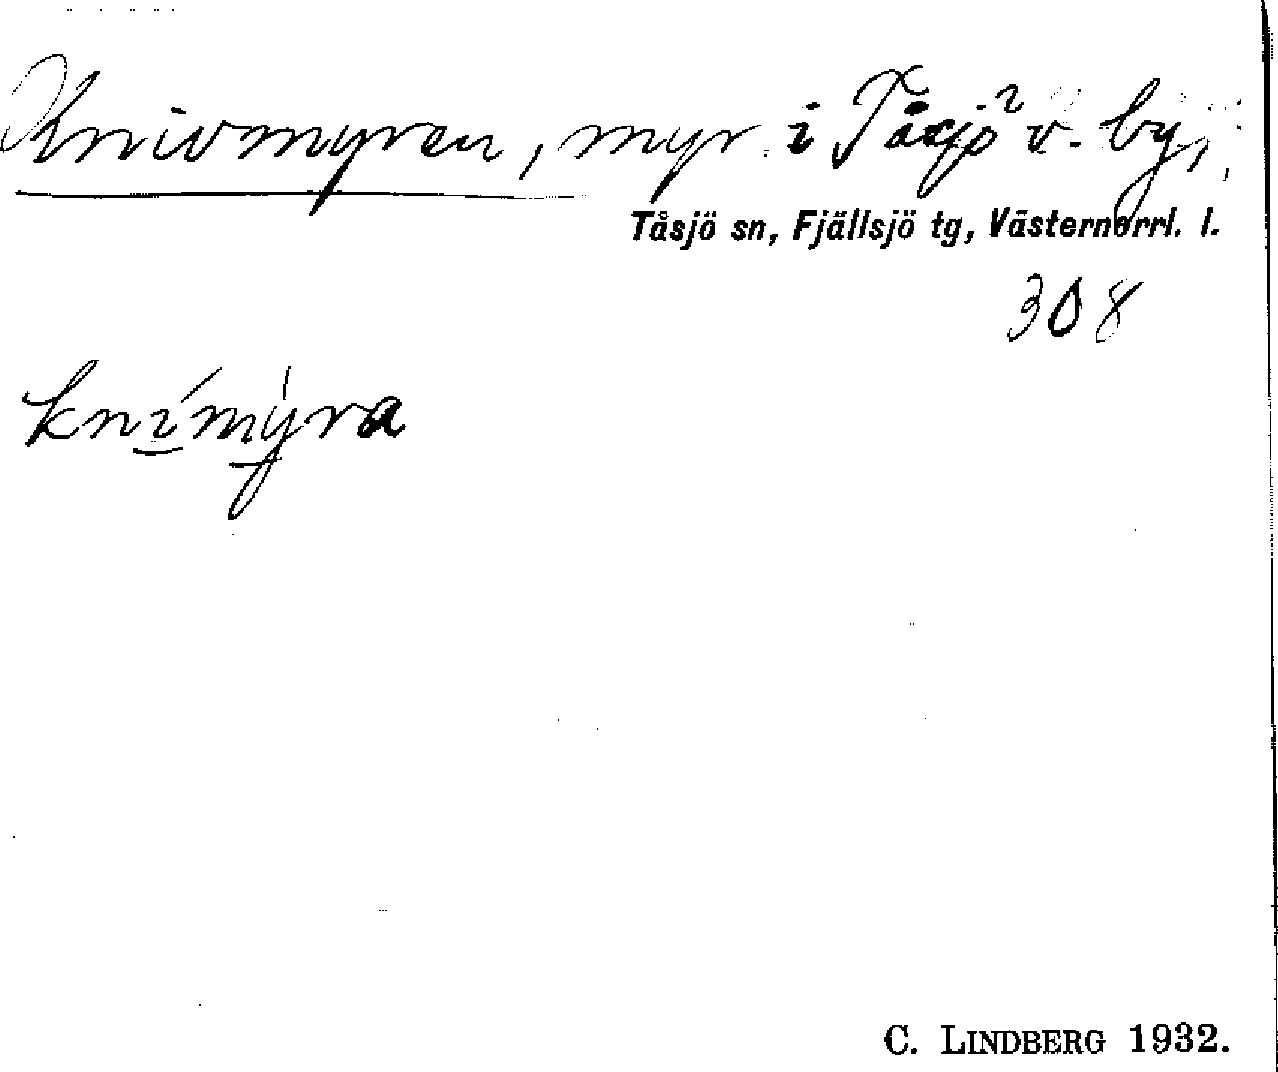 Knivmyren, myr i Tåsjö v. by,
Tåsjö sn, Fjällsjö tg, Västernorrl. l.
308
knímýra
C. LINDBERG 1932.